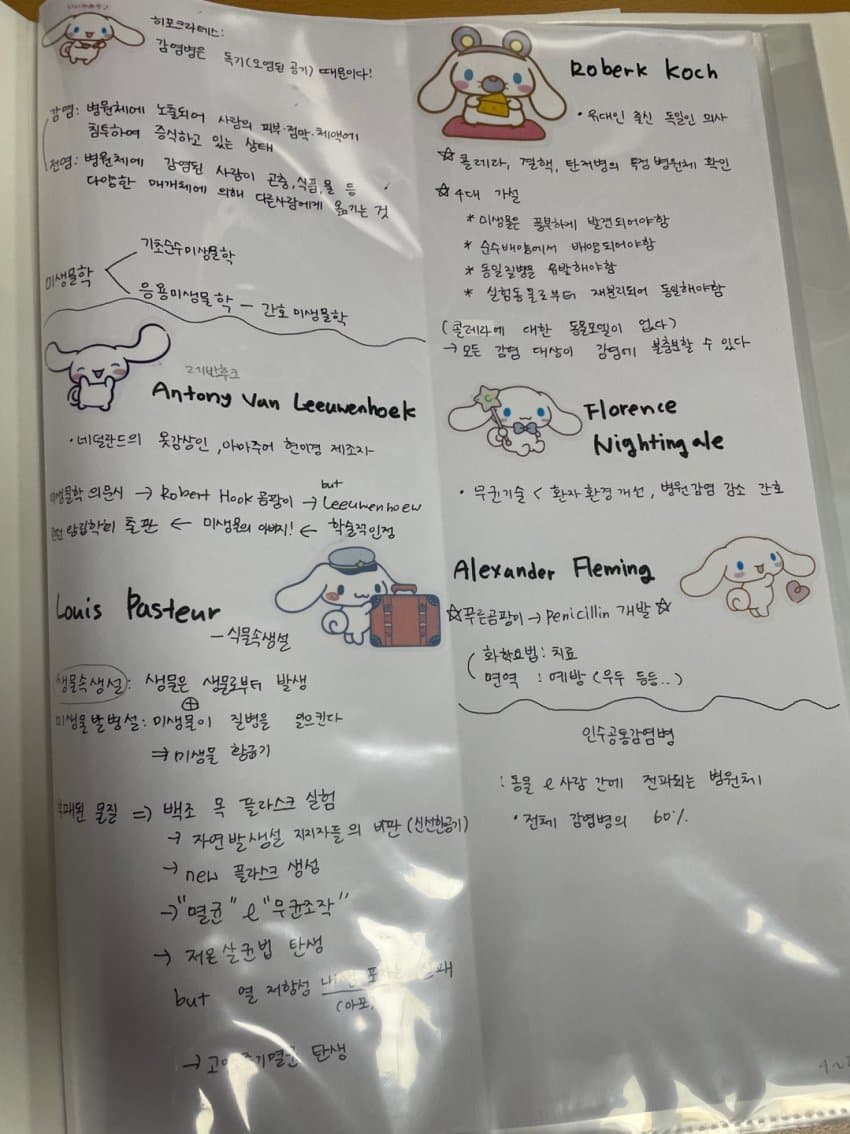 히포크라테스:
감염병은 독기(오염된 공기) 때문이다!
감염: 병원체에 노출되어 사람의 피부·점막·체액에
침투하여 증식하고 있는 상태
전염: 병원체에 감염된 사람이 곤충, 식품, 물 등
다양한 매개체에 의해 다른사람에게 옮기는 것
미생물학
기초순수미생물학
응용미생물학 — 간호 미생물학
Antony Van Leeuwenhoek
·네덜란드의 옷감상인, 아마추어 현미경 제조자
미생물학 의문시 → Robert Hook 곰팡이 → but Leeuwenhoew
왕립학회 출판 ← 미생물의 아버지! ← 학술적인정
Louis Pasteur
— 식물속생설
생물속생설: 생물은 생물로부터 발생
⊕
미생물 발병설: 미생물이 질병을 일으킨다
⇒ 미생물 황금기
부패된 물질 => 백조 목 플라스크 실험
→ 자연발생설 지지자들의 비판 (신선한공기)
→ new 플라스크 생성
→ "멸균" & "무균조작"
→ 저온살균법 탄생
but 열 저항성
(아포)
→ 탄생
Roberk Koch
·유대인 출신 독일인 의사
☆ 콜레라, 결핵, 탄저병의 특정 병원체 확인
☆ 4대 가설
* 미생물은 풍부하게 발견되어야함
* 순수배양에서 배양되어야함
* 동일질병을 유발해야함
* 실험동물로부터 재분리되어 동일해야함
(콜레라에 대한 동물모델이 없다)
→ 모든 감염 대상이 감염에 불충분할 수 있다
Florence
Nightingale
· 무균기술 < 환자 환경개선, 병원감염 감소 간호
Alexander Fleming
☆푸른곰팡이 → Penicillin 개발 ☆
화학요법: 치료
면역 : 예방 (우두 등등..)
인수공통감염병
: 동물 & 사람 간에 전파되는 병원체
· 전체 감염병의 60%